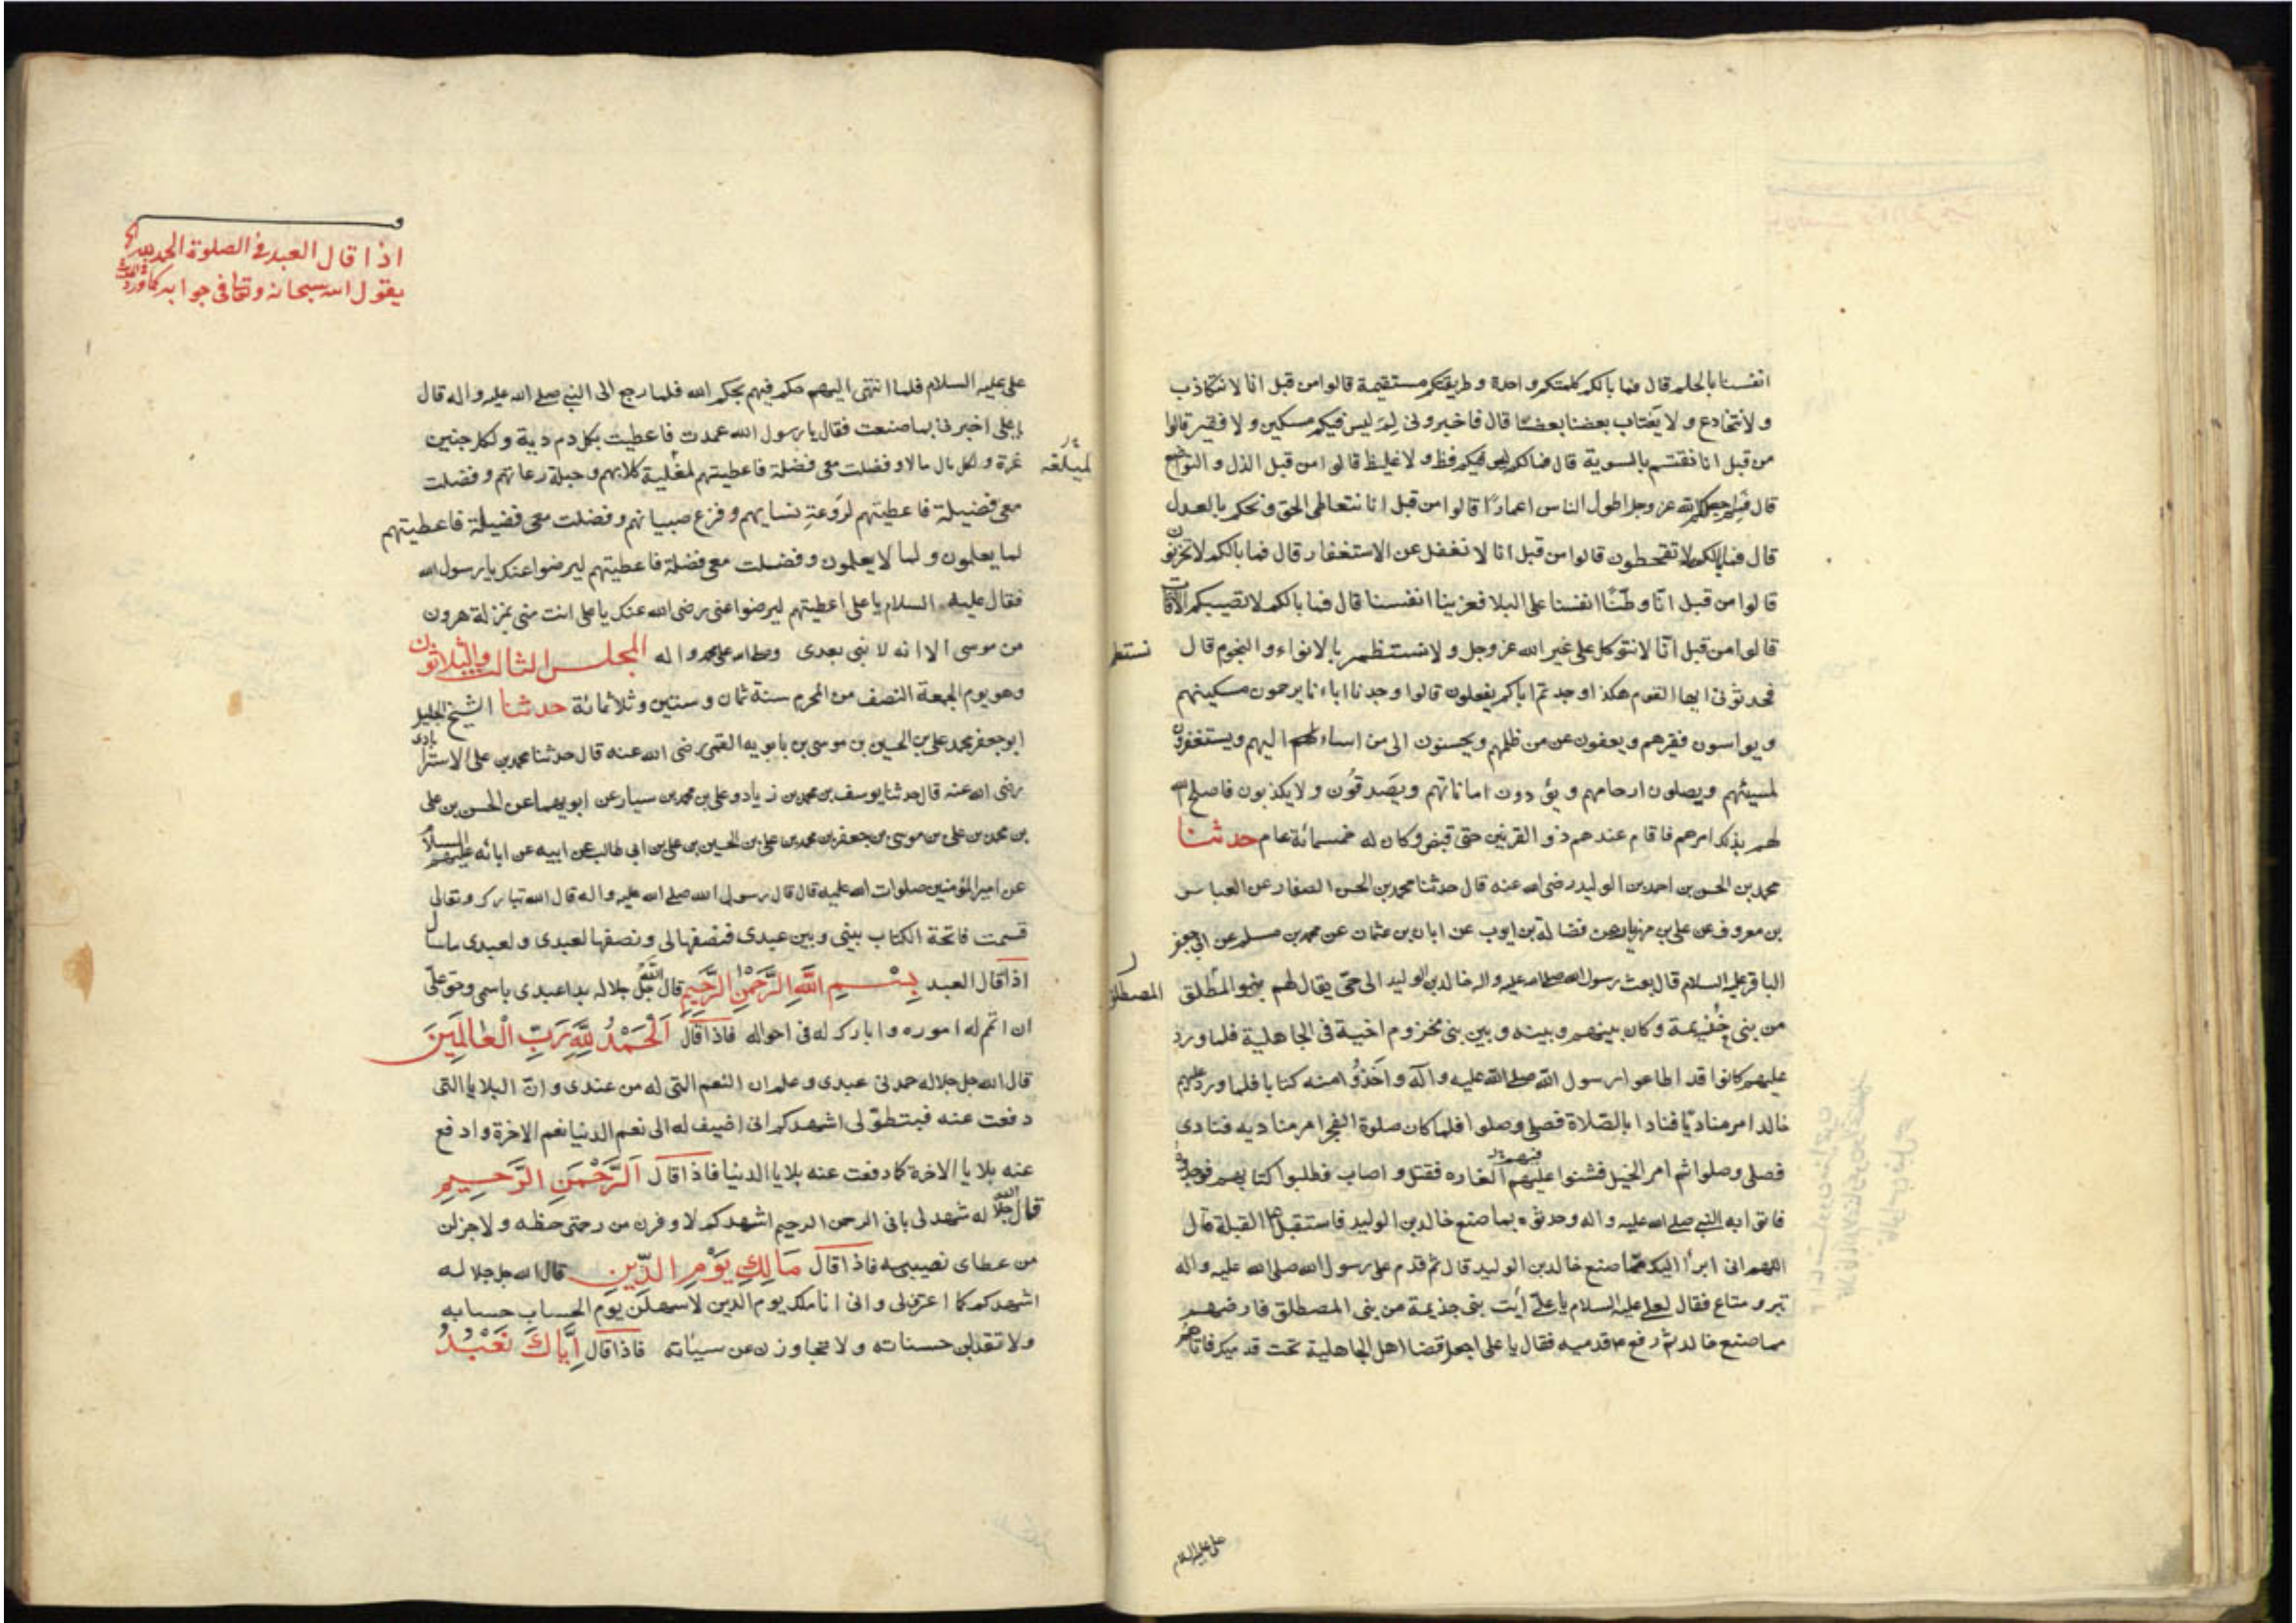 انفسنا بالحلم قال فما بالكم كلمتكم واحدة وطريقتكم مستقيمة قالوا من قبل انا لا نتكاذب
ولا نتخادع ولا يغتاب بعضنا بعضا قال فاخبروني لم ليس فيكم مسكين ولا فقير قالوا
من قبل انا نقتسم بالسوية قال فما لكم ليس فيكم فظ ولا غليظ قالوا من قبل الذل والتواضع
قال فلم جعلكم الله عز وجل اطول الناس اعمارًا قالوا من قبل انا نتعاطى الحق ونحكم بالعدل
قال فما بالكم لا تقحطون قالوا من قبل انا لا نغفل عن الاستغفار قال فما بالكم لا تحزنون
قالوا من قبل انّا وطّنّا انفسنا على البلا فعزينا انفسنا قال فما بالكم لا تصيبكم الآفات
قالوا من قبل انّا لا نتوكل على غير الله عز وجل ولا نستظهر بالانواء والنجوم قال
نستمطر
فحدثوني ايها القوم هكذا وجدتم اباكم يفعلون قالوا وجدنا اباءنا يرحمون مسكينهم
ويواسون فقرهم ويعفون عن من ظلمهم ويحسنون الى من اساء اليهم ويستغفرون
لمسيئهم ويصلون ارحامهم ويؤدون اماناتهم ويصَدقُون ولا يكذبون فاصلح الله
لهم بذلك امرهم فاقام عندهم ذو القرنين حتى قبض وكان له خمسمائة عام حدثنا
محمد بن الحسن بن احمد بن الوليد رضى الله عنه قال حدثنا محمد بن الحسن الصفار عن العباس
بن معروف عن على بن مهزيار عن فضالة بن ايوب عن ابان بن عثمان عن محمد بن مسلم عن ابي جعفر
الباقر عليه السلام قال بعث رسول الله صلى الله عليه واله خالد بن الوليد الى حى يقال لهم بنو المطلق
المصطلق
من بنى خذيمة وكان بينهم وبينه وبين بنى مخزوم اخية فى الجاهلية فلما ورد
عليهم كانوا قد اطاعوا رسول الله صلى الله عليه وآله واخذوا منه كتابا فلما ورد عليهم
خالد امر مناديًا فنادا بالصّلاة فصلى وصلوا فلما كان صلوة الفجر امر مناديه فنادى
فصلى وصلوا ثم امر الخيل فشنوا عليهم الغاره فقتل واصاب فطلبوا كتابهم فوجدوه
فاتوا به النبي صلى الله عليه واله وحدثوه بما صنع خالد بن الوليد فاستقبل القبلة قال
اللهم انى ابرأ اليك ممّا صنع خالد بن الوليد قال ثم قدم على رسول الله صلى الله عليه واله
تبر ومتاع فقال لعلى عليه السلام يا علىّ ايت بنى جذيمة من بنى المصطلق فارضهم
مما صنع خالد ثم رفع قدميه فقال يا على اجعل قضا اهل الجاهلية تحت قدميك فاتاهم
على عليه السلام
اذا قال العبد فى الصلوة الحمد لله
يقول الله سبحانه وتعالى فى جوابه كما ورد
على عليه السلام فلما انتهى اليهم حكم فيهم بحكم الله فلما رجع الى النبي صلى الله عليه واله قال
يا على اخبرنى بما صنعت فقال يا رسول الله عمدت فاعطيت بكل دم دية ولكل جنين
غرة ولكل مال مالا وفضلت معى فضلة فاعطيتهم لمغلبة كلابهم وحبلة رعاتهم وفضلت
لميلغه
معى فضيلة فاعطيتهم لرَوعةِ نسايهم وفزع صبيانهم وفضلت معى فضيلة فاعطيتهم
لما يعلمون ولما لا يعلمون وفضلت معى فضلة فاعطيتهم ليرضوا عنك يا رسول الله
فقال عليه السلام يا على اعطيتهم ليرضوا عنى رضى الله عنك يا على انت منى بمنزلة هرون
من موسى الا انه لا نبى بعدى وصلى الله على محمد واله المجلس الثالث والثلاثون
وهو يوم الجمعة النصف من المحرم سنة ثمان وستين وثلاثمائة حدثنا الشيخ الجليل
ابو جعفر محمد بن على بن الحسين بن موسى بن بابويه القمى رضى الله عنه قال حدثنا محمد بن على الاسترابادى
رضى الله عنه قال حدثنا يوسف بن محمد بن زياد وعلى بن محمد بن سيار عن ابويهما عن الحسن بن على
بن محمد بن على بن موسى بن جعفر بن محمد بن على بن الحسين بن على بن ابى طالب عن ابيه عن ابائه عليهم السلام
عن امير المؤمنين صلوات الله عليه قال قال رسول الله صلى الله عليه واله قال الله تبارك وتعالى
قسمت فاتحة الكتاب بينى وبين عبدى فنصفها لى ونصفها لعبدى ولعبدى ما سأل
اذا قال العبد بِسْمِ اللَّهِ الرَّحْمنِ الرَّحِيمِ قال الله جل جلاله بدا عبدى باسمى وحق علىّ
ان اتمم له اموره وابارك له فى احواله فاذا قال اَلْحَمْدُ لِلّهِ رَبِّ الْعَالَمِينَ
قال الله جل جلاله حمدنى عبدى وعلم ان النعم التى له من عندى وانّ البلايا التى
دفعت عنه فبتطوّلى اشهدكم انى اضيف له الى نعم الدنيا نعم الاخرة وادفع
عنه بلايا الاخرة كما دفعت عنه بلايا الدنيا فاذا قال اَلرَّحْمَنِ الرَّحِيمِ
قال الله جلاله شهد لى بانى الرحمن الرحيم اشهدكم لاوفرن من رحمتى حظه ولاجزلن
من عطاى نصيبه فاذا قال مَالِكِ يَوْمِ الدِّينِ قال الله جل جلاله
اشهدكم كما اعترف لى وانى انا ملك يوم الدين لاسهلن يوم الحساب حسابه
ولاتقبلن حسناته ولا تجاوزن عن سيئاته فاذا قال إِيَّاكَ نَعْبُدُ